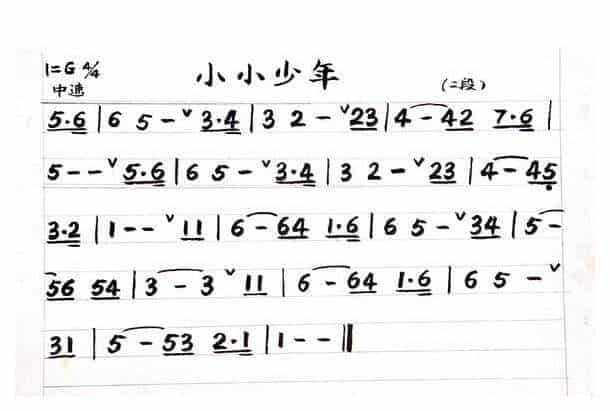 1=G 4/4 小小少年
中速 (二段)
5·6 | 6 5 - ˅ 3·4 | 3 2 - ˅ 23 | 4 - 42 7·6 |
5 - - ˅ 5·6 | 6 5 - ˅ 3·4 | 3 2 - ˅ 23 | 4 - 45
3·2 | 1 - - ˅ 11 | 6 - 64 1·6 | 6 5 - ˅ 34 | 5 -
56 54 | 3 - 3 ˅ 11 | 6 - 64 1·6 | 6 5 - ˅
31 | 5 - 53 2·1 | 1 - - ‖